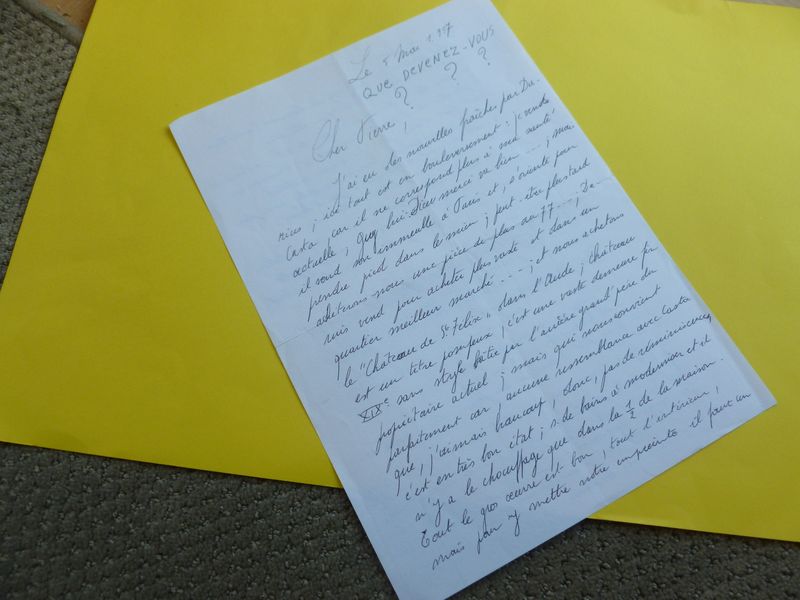 Le 5 Mai 1997
QUE DEVENEZ-VOUS
? ? ?
Cher Pierre,
J'ai eu des nouvelles fraîches par Du-
nius ; ici tout est en bouleversement : je vends
Casta car il ne correspond plus à ma santé
actuelle ; Guy lui Dieu merci va bien ... ; mais
il vend son immeuble à Paris et, s'oriente pour
prendre pied dans le mien ; peut-être plus tard
achèterons-nous une pièce de plus au 77 ... ; Du-
nius vend pour acheter plus vaste et dans un
quartier meilleur marché ... ; et nous achetons
le "Château de St Félix" dans l'Aude ; Château
est un titre pompeux, c'est une vaste demeure fin
XIXe sans style bâtie par l'arrière grand'père du
propiétaire actuel ; mais qui nous convient
parfaitement car aucune ressemblance avec Casta
que, j'aimais beaucoup, donc, pas de réminiscence,
c'est en très bon état ; s. de bains à moderniser et il
n'y a le chauffage que dans la 1/2 de la maison.
Tout le gros œuvre est bon, tout l'extérieur,
mais pour y mettre notre empreinte il faut un